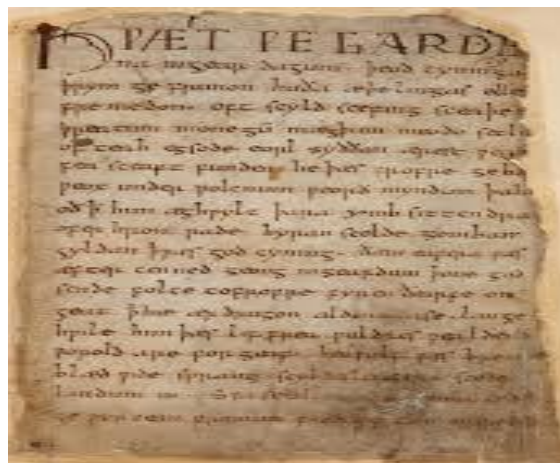 HǷÆT ǷE GARDE
na ingear dagum. þeod cyninga
þrym ge frunon huða æþelingas elle
fremedon. oft scyld scefing sceaþe
þreatum monegū mægþum meodo setla
of teah egsode eorl syððan ærest ƿearð
fea sceaft funden he þæs frofre geba
ƿeox under ƿolcnum ƿeorð myndum þah
oð þ him æghƿylc þara ymb sittendra
ofer hron rade hyran scolde gomban
gyldan þ ƿæs god cyning. ðæm eafera ƿæs
æfter cenned geong ingeardum þone god
sende folce tofrofre fyren ðearfe on
geat þ hie ær drugon aldor ase. lange
hƿile him þæs lif frea ƿuldres ƿealdend
ƿorold are for geaf. beoƿulf ƿæs breme
blæd ƿide sprang scyldes eafera scede
landum in. Sƿa sceal